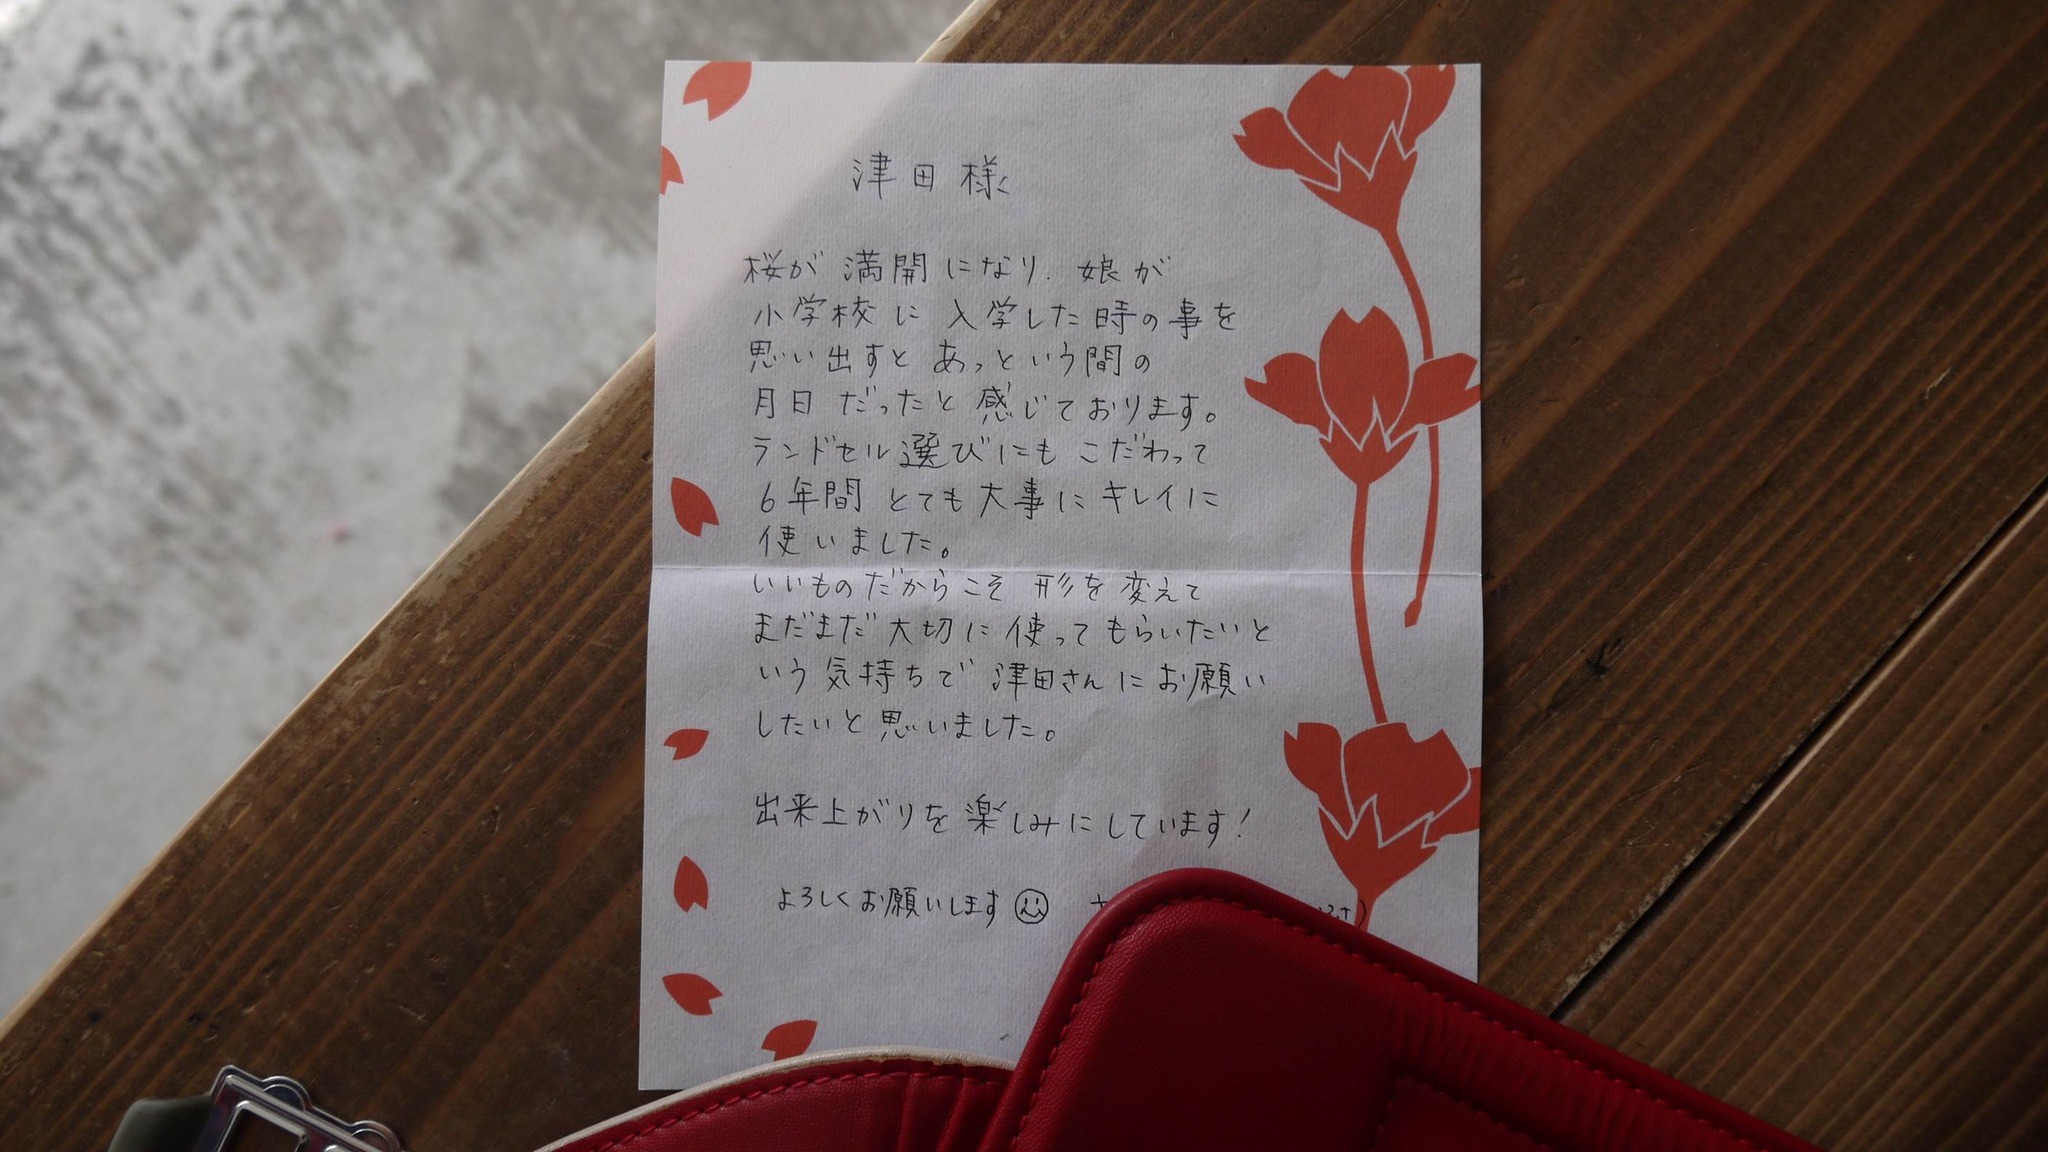 津田様
桜が満開になり、娘が
小学校に入学した時の事を
思い出すとあっという間の
月日だったと感じております。
ランドセル選びにもこだわって
6年間とても大事にキレイに
使いました。
いいものだからこそ形を変えて
まだまだ大切に使ってもらいたいと
いう気持ちで津田さんにお願い
したいと思いました。
出来上がりを楽しみにしています!
よろしくお願いします